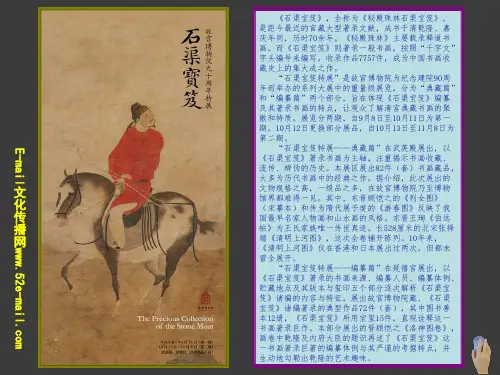 E-mail:文化传播网www.52e-mail.com
故宫博物院九十周年特展
石渠寶笈
The Precious Collection
of the Stone Moat
《石渠宝笈》，全称为《秘殿珠林石渠宝笈》，
是距今最近的官藏大型著录文献，成书于清乾隆、嘉
庆年间，历时70余年。《秘殿珠林》主要录释道书
画，而《石渠宝笈》则著录一般书画，按照“千字文”
字头编号来编写，收录作品7757件，成为中国书画收
藏史上的集大成之作。
“石渠宝笈特展”是故宫博物院为纪念建院90周
年而举办的系列大展中的重量级展览。分为“典藏篇”
和“编纂篇”两个部分，旨在体现《石渠宝笈》编纂
及其著录书画的特点，让观众了解清宫典藏书画的繁
缛和特质。展览分两期，自9月8日至10月11日为第一
期，10月12日更换部分展品，自10月13日至11月8日为
第二期。
“石渠宝笈特展——典藏篇”在武英殿展出，以
《石渠宝笈》著录书画为主轴，注重揭示书画收藏、
流传、辨伪的历史。本展区展出82件（套）书画藏品，
大多为历代书画中的经典之作。据介绍，此次展出的
文物规格之高，一级品之多，在故宫博物院乃至博物
馆界都难得一见。其中，东晋顾恺之的《列女图》
（宋摹本）和传为隋代展子虔的《游春图》反映了我
国最早名家人物画和山水画的风格。东晋王珣《伯远
帖》为王氏家族唯一传世真迹。长528厘米的北宋张择
端《清明上河图》，这次全卷铺开陈列。10年来，
《清明上河图》仅在香港和日本展出过两次，但都未
曾全展开。
“石渠宝笈特展——编纂篇”在延禧宫展出，以
《石渠宝笈》著录的书画来源、编纂人员、编纂体例、
贮藏地点及其版本与玺印五个部分逐次解析《石渠宝
笈》诸编的内容与特征。展出故宫博物院藏、《石渠
宝笈》诸编著录的典型作品72件（套），其中图书善
本12册，《石渠宝笈》所用宝玺15件，直观诠释这一
书画著录巨作。本部分展出的晋顾恺之《洛神图卷》，
画卷中乾隆及内府大臣的题识再述了《石渠宝笈》这
一书画著录巨著的编纂体例与其严谨的考据特点，并
生动地勾勒出乾隆的艺术趣味。